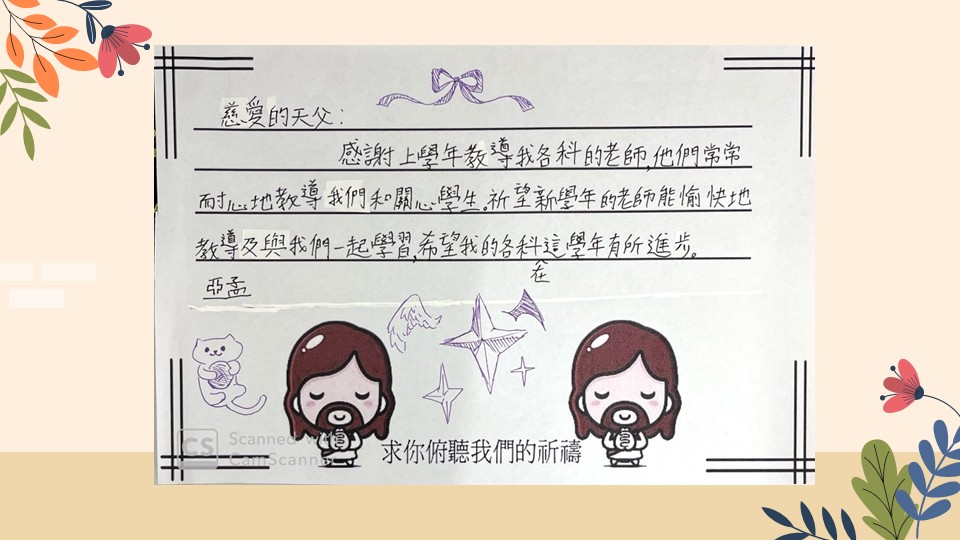 慈愛的天父：
感謝上學年教導我各科的老師,他們常常
耐心地教導我們和關心學生。祈望新學年的老師能愉快地
教導及與我們一起學習,希望我的各科這學年有所進步。
在
亞孟
CS Scanned with
CamScanner
求你俯聽我們的祈禱